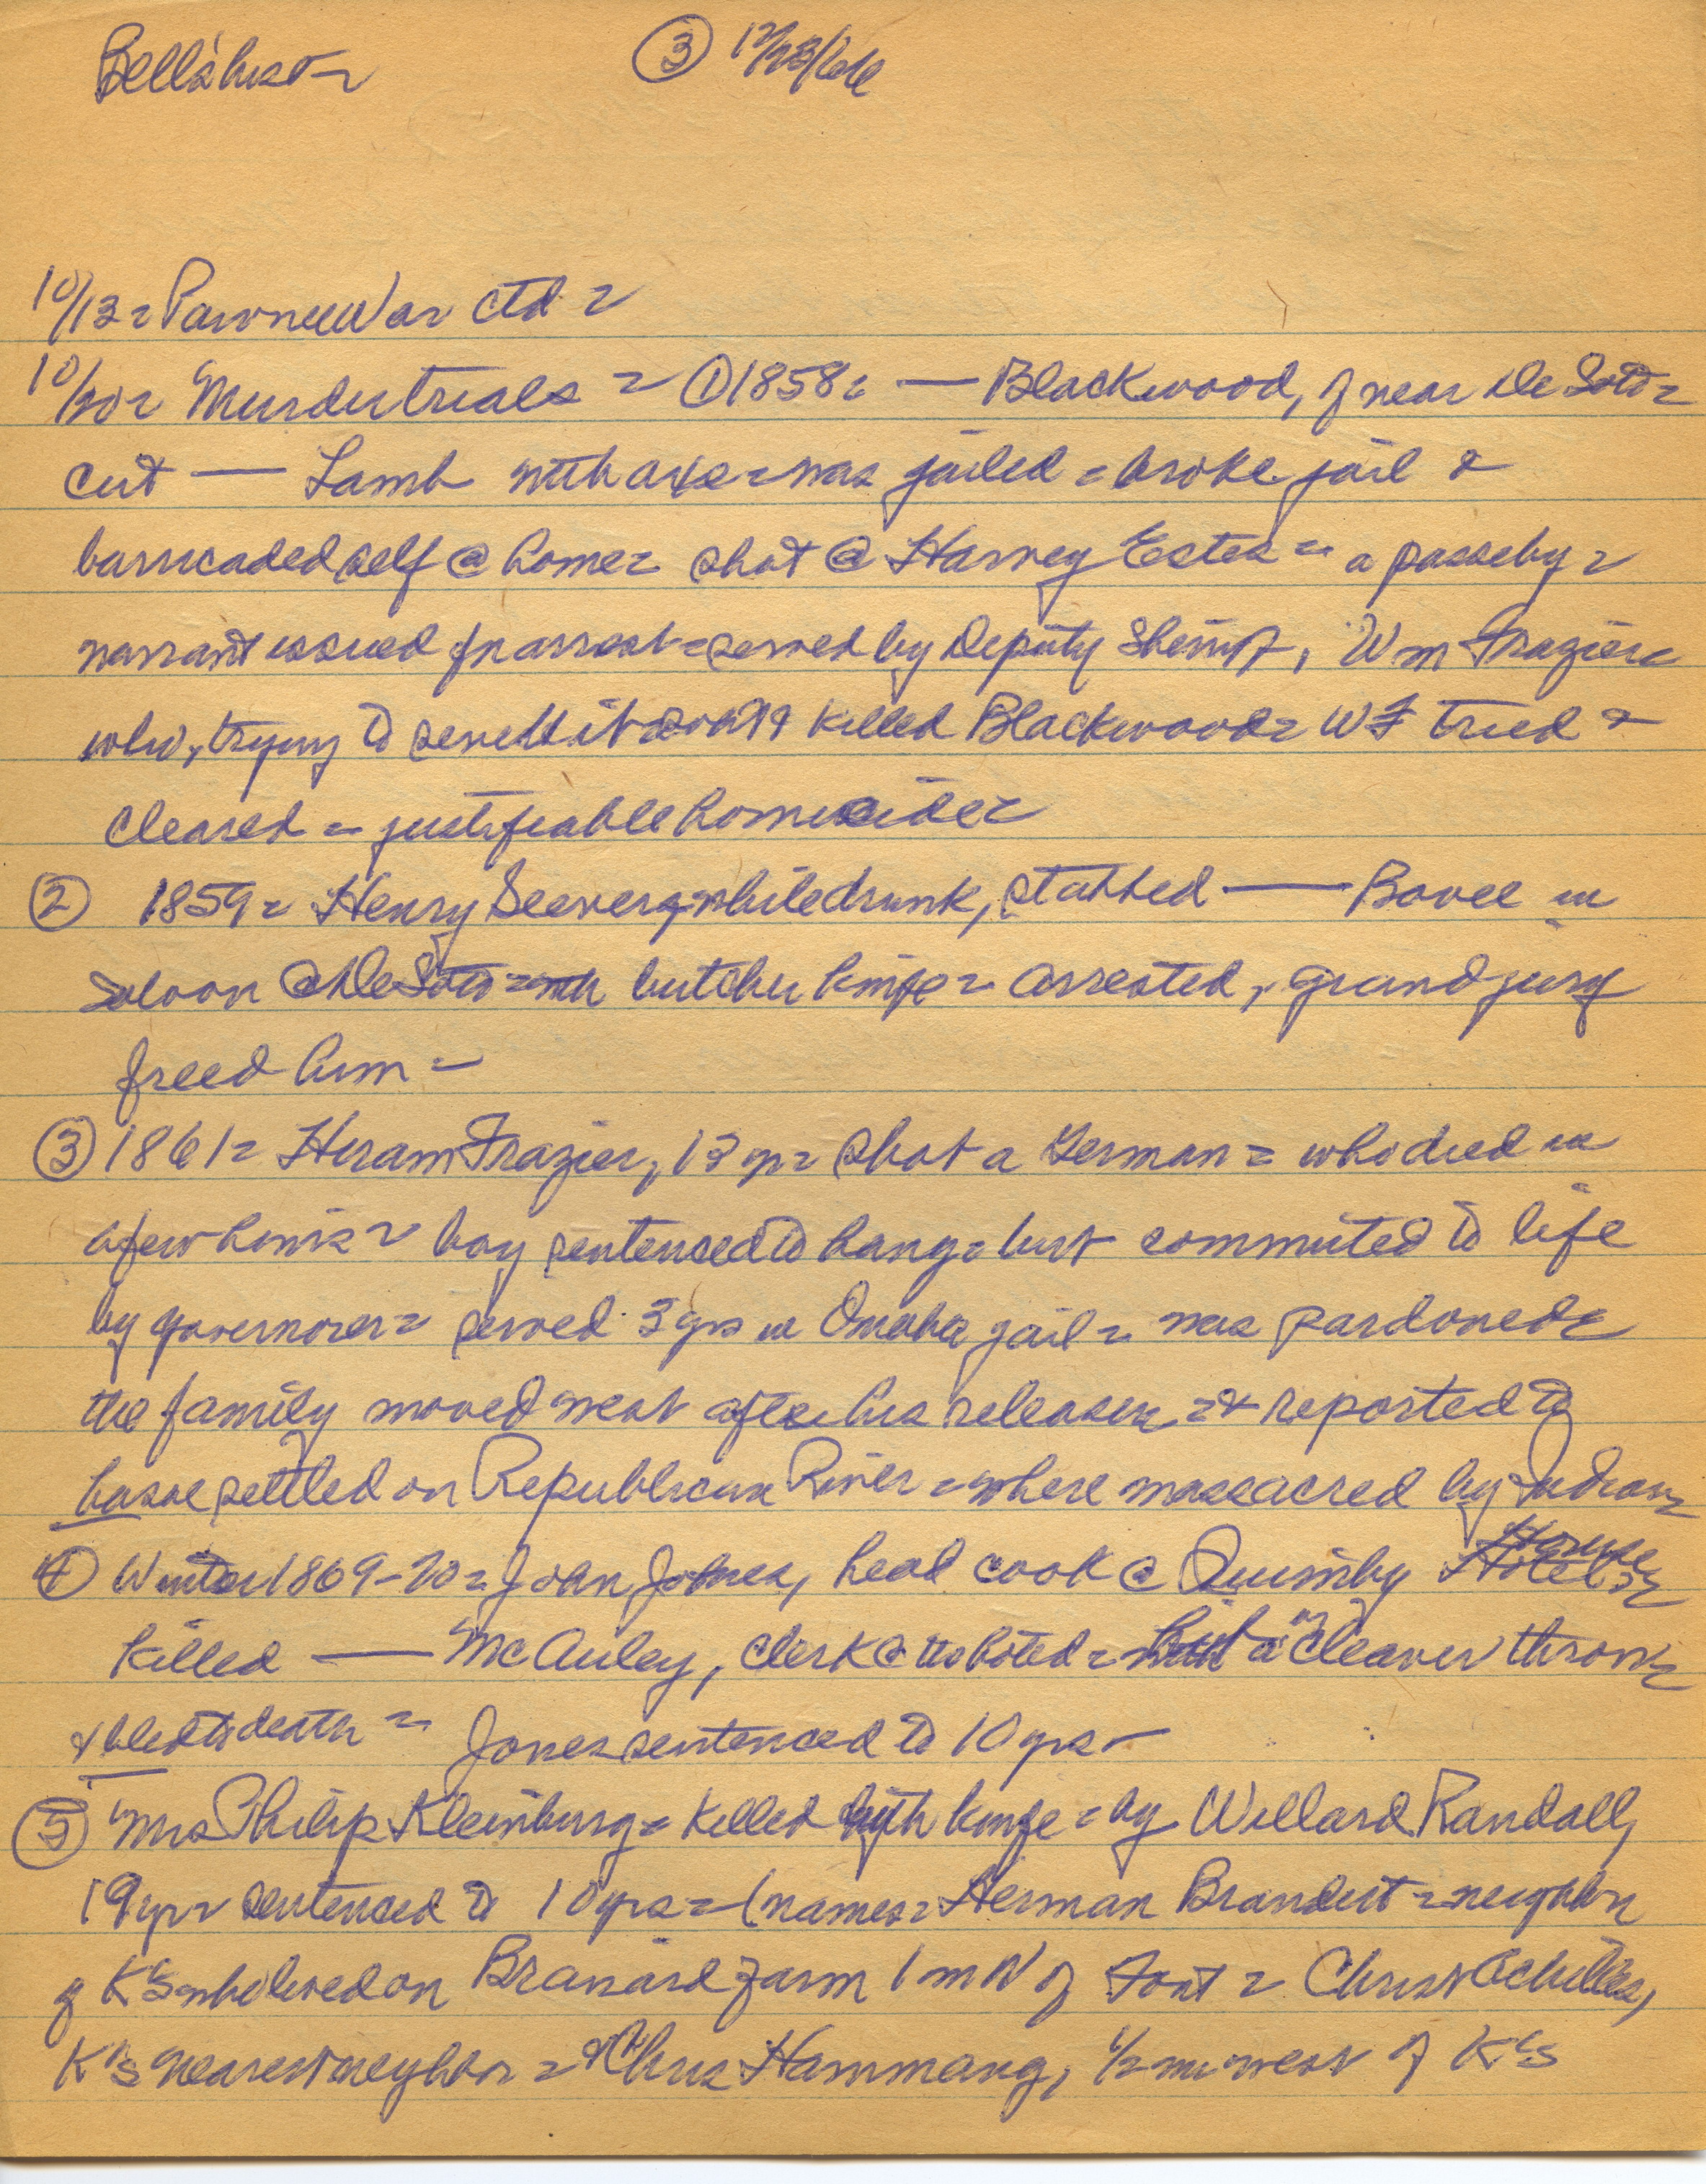 Bell's hist = ③ 12/28/66
10/13 = Pawnee War ctd =
10/20 = Murder trials = ① 1858 = — Blackwood, of near De Soto =
cut — Lamb with axe = was jailed = broke jail &
barricaded self @ home = shot @ Harvey Estes = a passeby =
warrant issued for arrest = served by Deputy Sheriff, Wm Frazier =
who, trying to serve it killed Blackwood = WF tried &
cleared = justifiable homicide =
② 1859 = Henry Seevers = while drunk, stabbed — Bovee in
saloon @ De Soto = with butcher knife = arrested, grand jury
freed him =
③ 1861 = Hiram Frazier, 13 yr = shot a German = who died in
a few hours = boy sentenced to hang = but commuted to life
by governor = served 3 yrs in Omaha jail = was pardoned =
the family moved west after his release = & reported to
have settled on Republican River = where massacred by Indians
④ Winter 1869-70 = John Jones, head cook @ Quimby House =
killed — McAuley, clerk @ the hotel = hit a cleaver thrown =
& bled to death = Jones sentenced to 10 yrs =
⑤ Mrs Philip Kleinburg = killed with knife = by Willard Randall,
19 yr = sentenced to 10 yrs = (names = Herman Brandert = neighbor
of K's who lived on Brainard farm 1 m N of Font = Christ Achilles,
K's nearest neighbor = & Chris Hammang, 1/2 mi west of K's